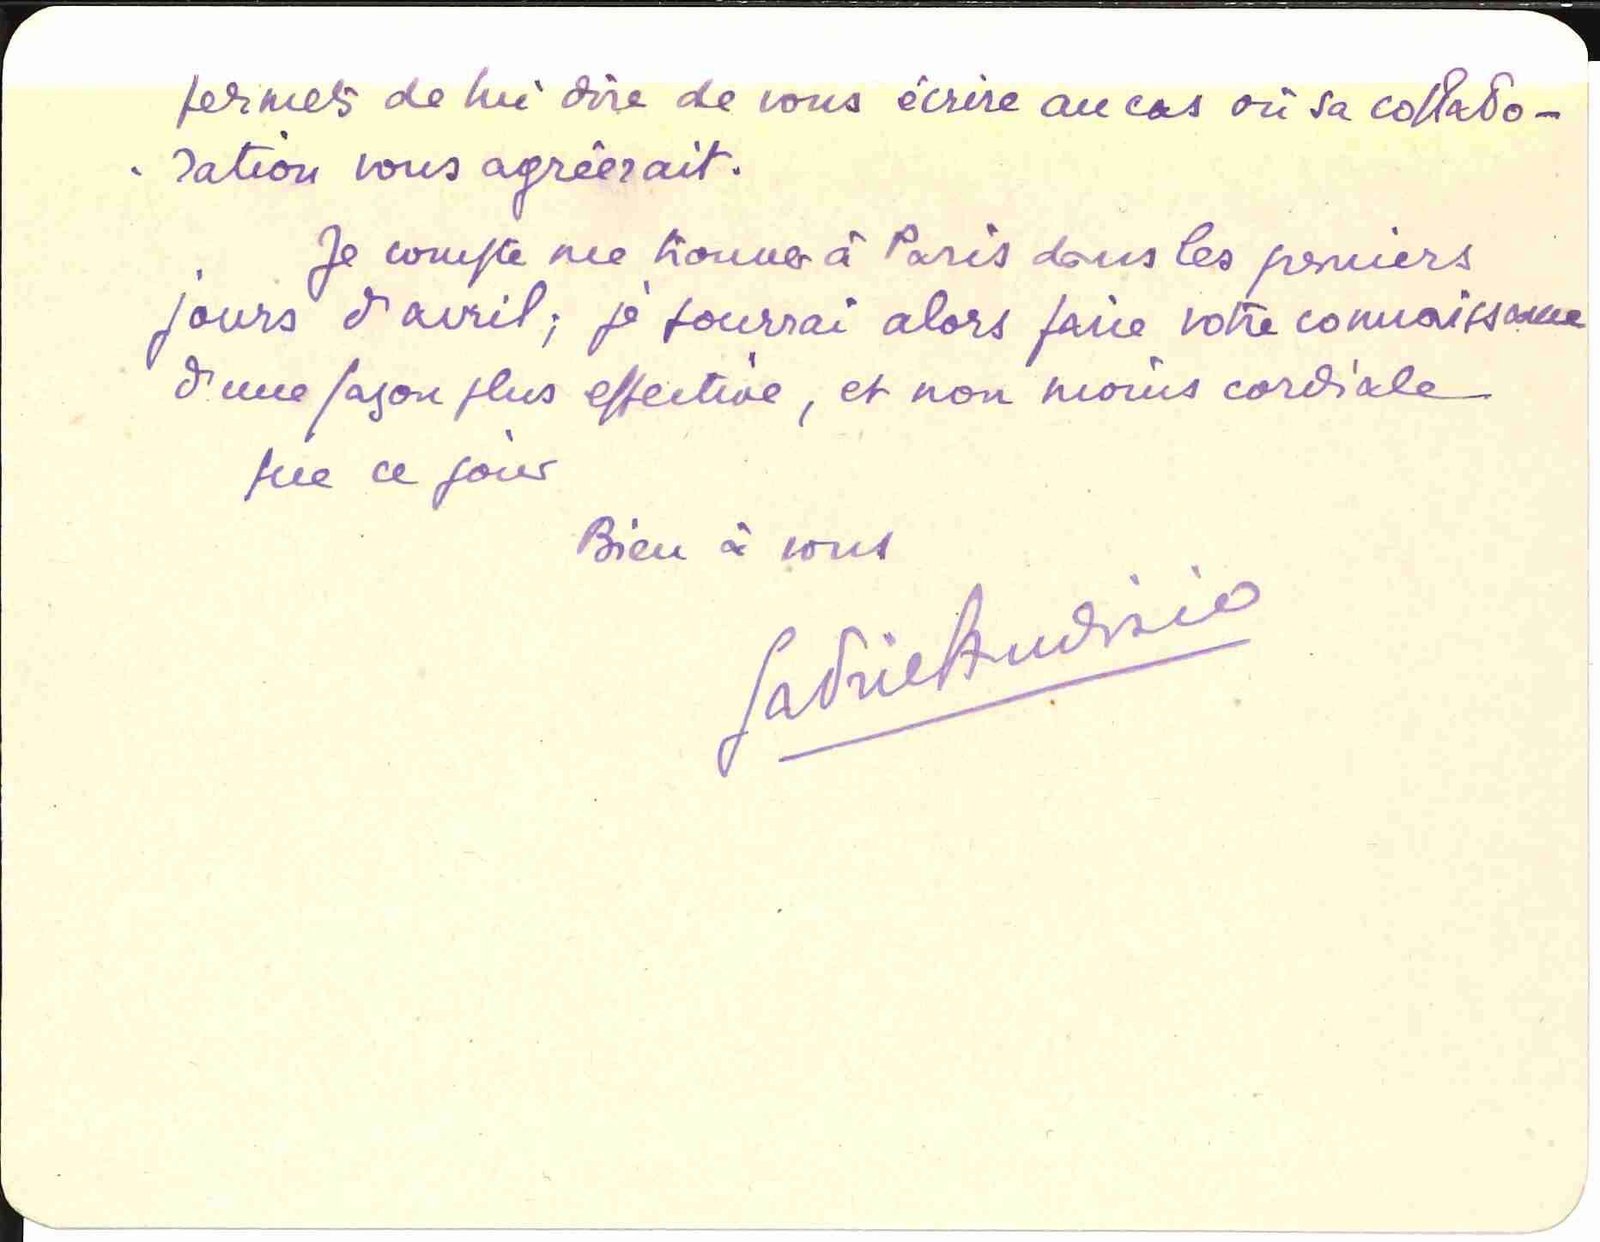 permets de lui dire de vous écrire au cas où sa collabo-
ration vous agréerait.
Je compte me trouver à Paris dans les premiers
jours d'avril ; je pourrai alors faire votre connaissance
d'une façon plus effective, et non moins cordiale
que ce jour
Bien à vous
Gabriel Audisio